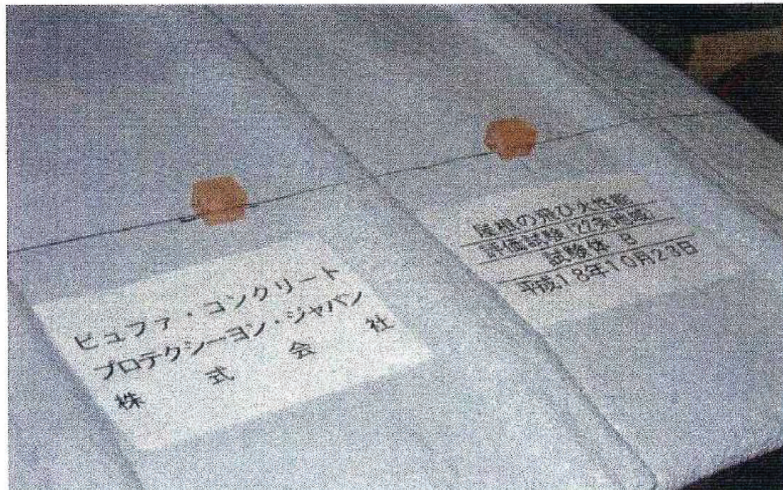 ビュファ・コンクリート
プロテクシーヨン・ジャパン
株式会社
屋根の飛び火性能
評価試験(22条地域)
試験体 B
平成18年10月23日